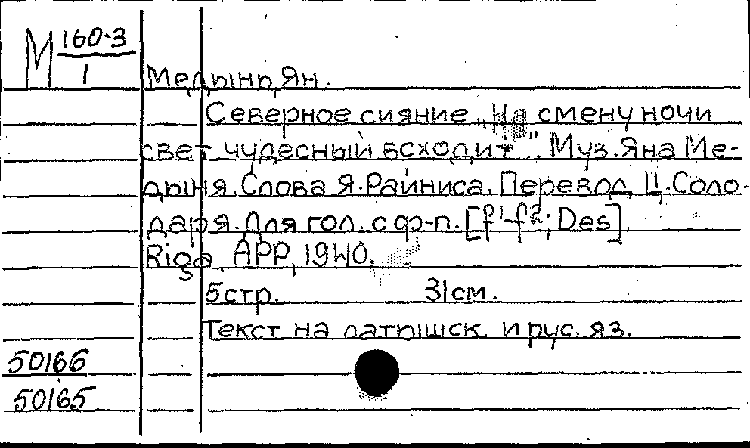 М 160-3
1
Медынь, Ян.
Северное сияние „На смену ночи
свет чудесный всходит". Муз. Яна Ме-
дыня. Слова Я. Райниса. Перевод Ц. Соло-
даря. Для гол. с ф-п. [f¹-f²; Des]
Riga, APP, 1940.
5 стр. 31 см.
Текст на латышск. и рус. яз.
50166
50165